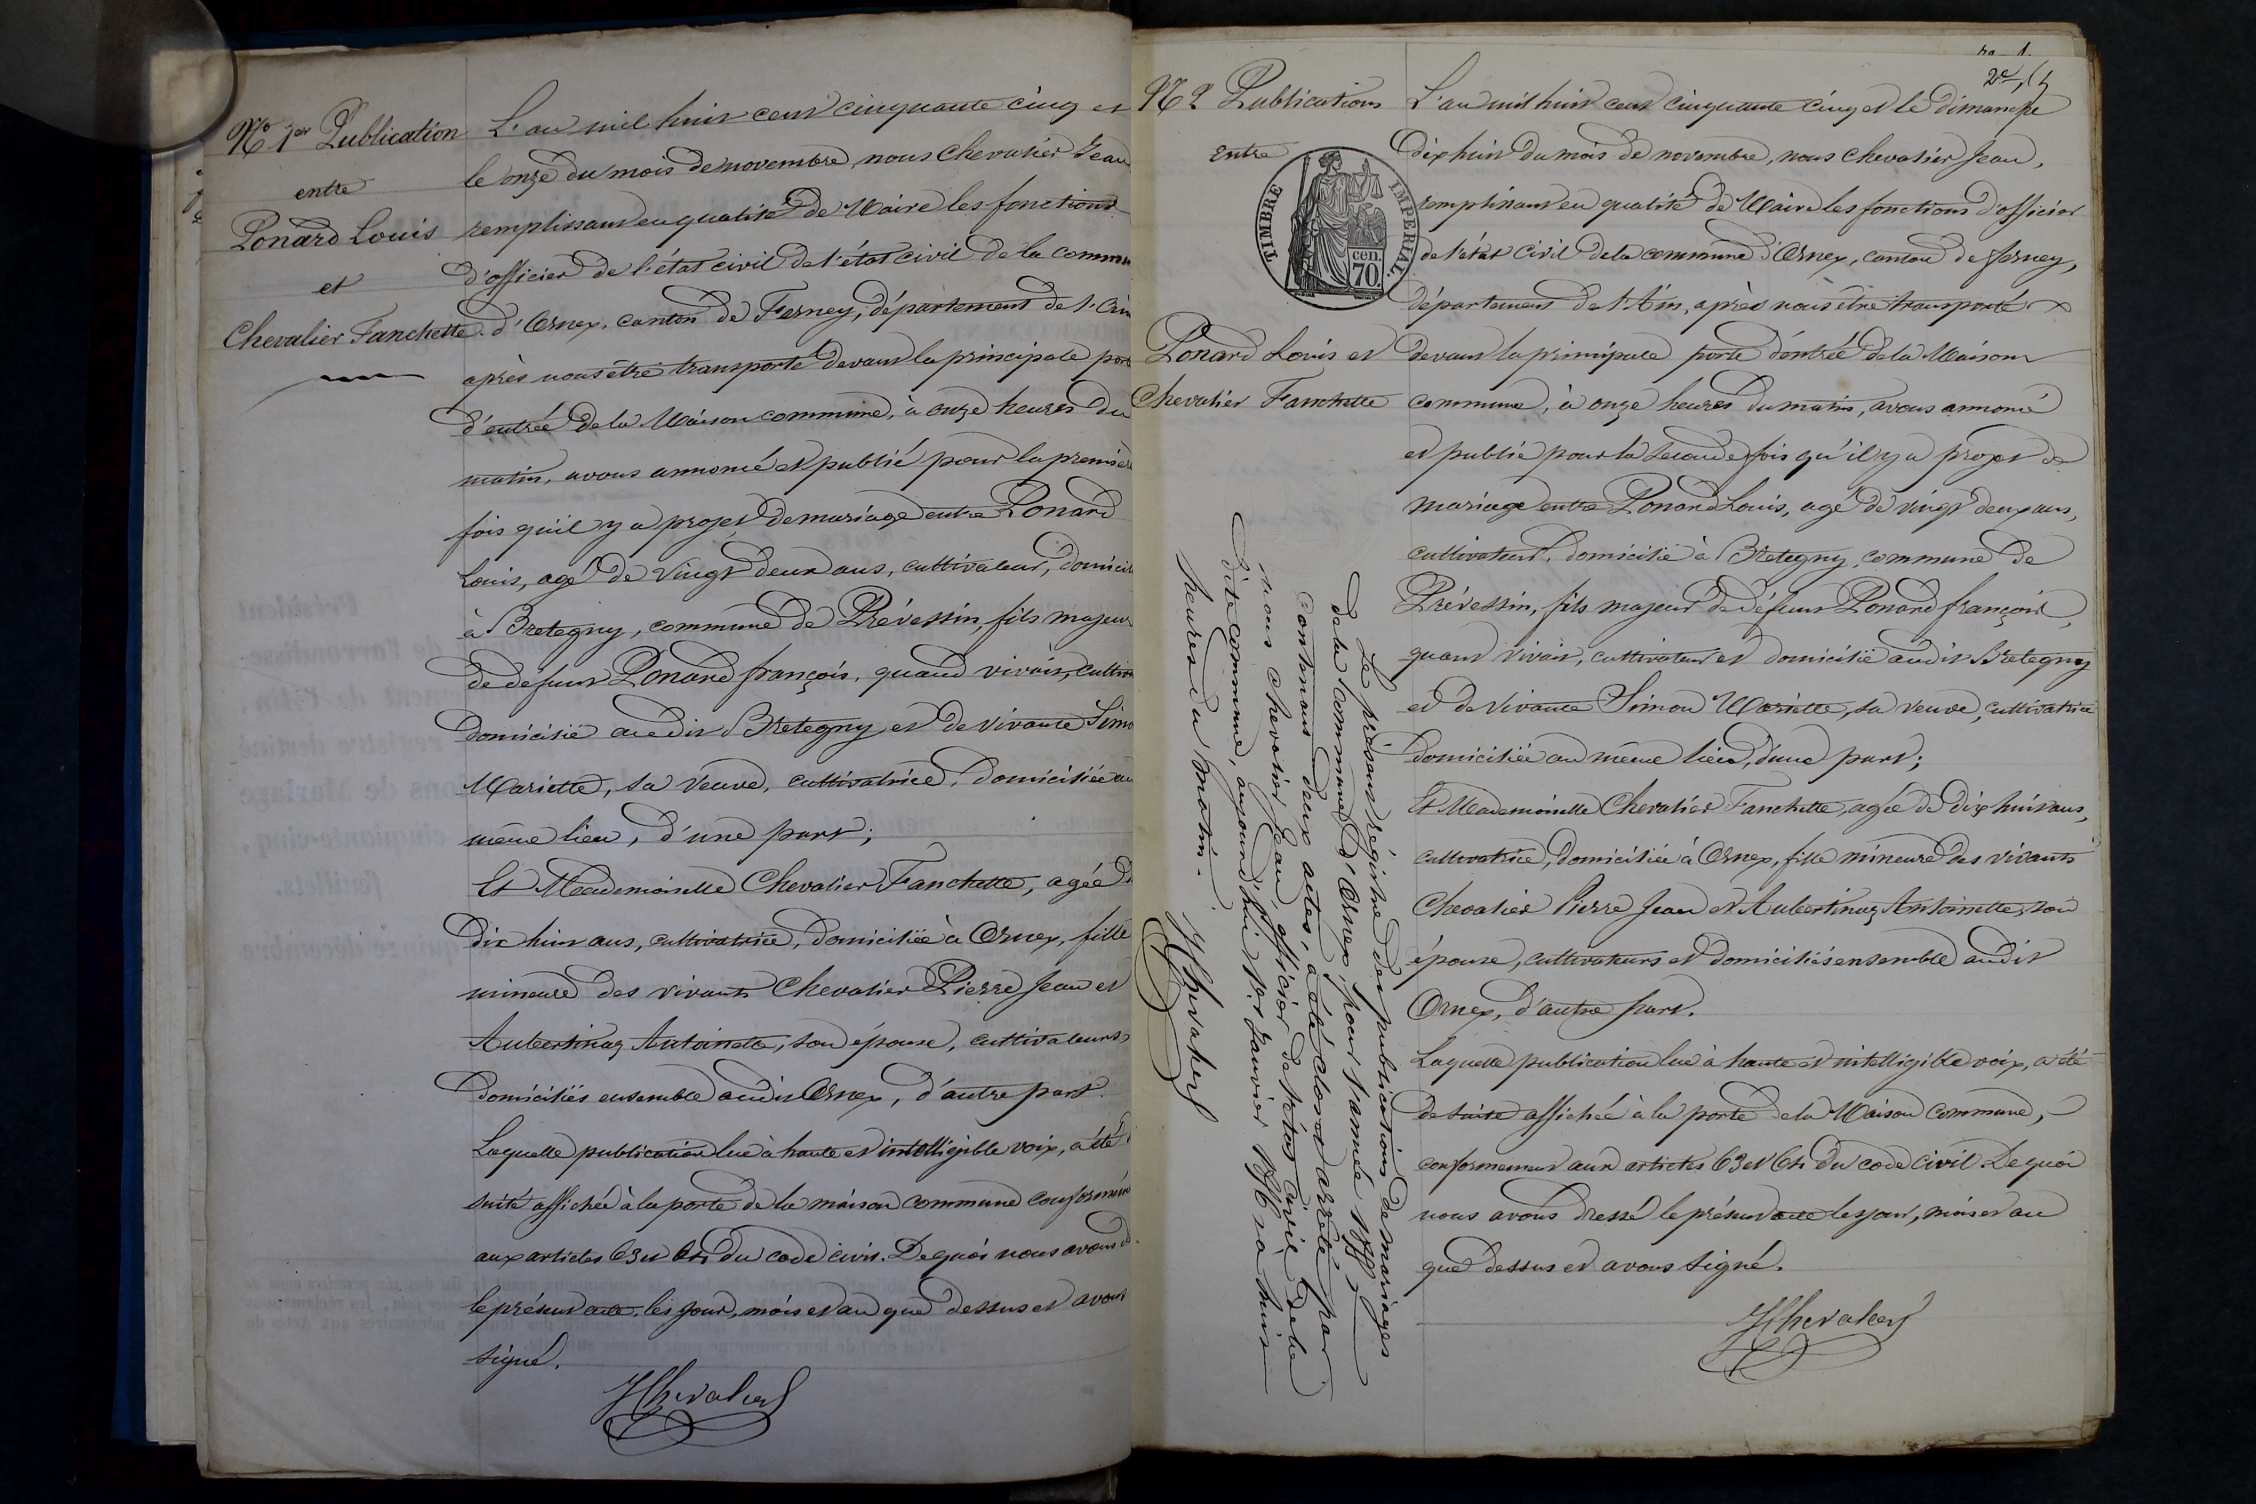 No 1er Publication
entre
Ponard Louis
et
Chevalier Fanchette
L'an mil huit cent cinquante cinq et
le onze du mois de novembre, nous Chevalier Jean
remplissant en qualité de Maire les fonctions
d'officier de l'état civil de l'état civil de la commu
d'Ornex, canton de Ferney, département de l'Ain
après nous être transporté devant la principale port
d'entrée de la Maison commune, à onze heures du
matin, avons annoncé et publié pour la premiè
fois qu'il y a projet de mariage entre Ponard
Louis, agé de vingt deux ans, cultivateur, domicili
à Bretegny, commune de Prévessin, fils majeur
de defunt Ponard françois, quand vivait, cultiv
domicilié audit Bretegny et de vivante Simo
Mariette, sa veuve, cultivatrice, domiciliée au
même lieu, d'une part;
Et Mademoiselle Chevalier Fanchette, agée d
dix huit ans, cultivatrice, domiciliée à Ornex, fille
mineure des vivants Chevalier Pierre Jean et
Aubertinaz Antoinette, son épouse, cultivateurs
domiciliés ensemble audit Ornex, d'autre part.
Laquelle publication lue à haute et intelligible voix, a été
suite affichée à la porte de la maison commune conformém
aux articles 63 et 64 du code civil. De quoi nous avons d
le présent acte, les jour, mois et an que dessus et avons
signé.
JChevalier
No 2 Publications
Entre
TIMBRE IMPERIAL.
cen. 70.
Ponard Louis et
Chevalier Fanchette
L'an mil huit cent cinquante cinq et le dimanche
dix huit du mois de novembre, nous Chevalier Jean,
remplissant en qualité de Maire les fonctions d'officier
de l'état civil de la commune d'Ornex, canton de Ferney,
département de l'Ain, après nous être transporté
devant la principale porte d'entrée de la Maison
commune, à onze heures du matin, avons annoncé
et publié pour la seconde fois qu'il y a projet de
mariage entre Ponard Louis, agé de vingt deux ans,
cultivateur, domicilié à Bretegny, commune de
Prévessin, fils majeur de défunt Ponard françois,
quand vivait, cultivateur et domicilié audit Bretegny
et de vivante Simon Mariette, sa veuve, cultivatrice
domiciliée au même lieu, d'une part;
Et Mademoiselle Chevalier Fanchette, agée de dix huit ans,
cultivatrice, domiciliée à Ornex, fille mineure des vivants
Chevalier Pierre Jean et Aubertinaz Antoinette, son
épouse, cultivateurs et domiciliés ensemble audit
Ornex, d'autre part.
Laquelle publication lue à haute et intelligible voix, a été
de suite affichée à la porte de la Maison commune,
conformément aux articles 63 et 64 du code civil. De quoi
nous avons dressé le présent acte les jour, mois et an
que dessus et avons signé.
JChevalier
Le présent régistre des publications de mariages
de la Commune d'Ornex, pour l'année 1855,
contenant deux actes, a été clos et arrêté par
nous Chevalier Jean, officier de l'état civil de la
dite commune, aujourd'hui 1er Janvier 1856 à huit
heures du matin.
JChevalier